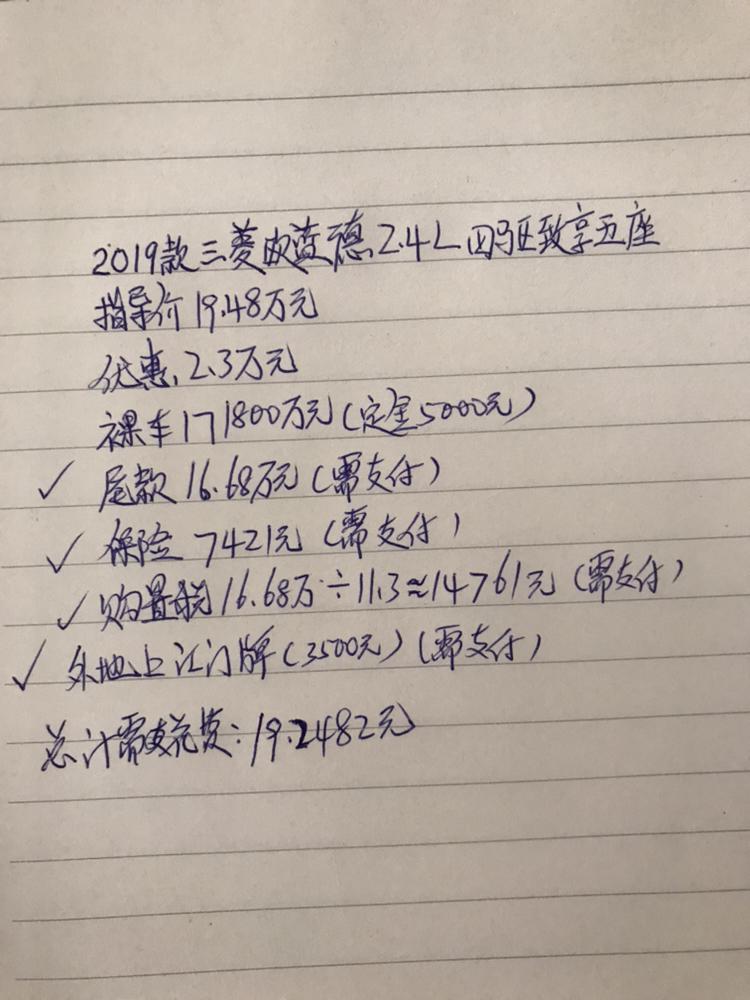 2019款三菱欧蓝德2.4L四驱致享五座
指导价19.48万元
优惠2.3万元
裸车171800万元(定金5000元)
✓ 尾款16.68万元(需支付)
✓ 保险 7421元(需支付)
✓ 购置税16.68万÷11.3≈14761元(需支付)
✓ 外地上江门牌(3500元)(需支付)
总计需支花费:19.2482元